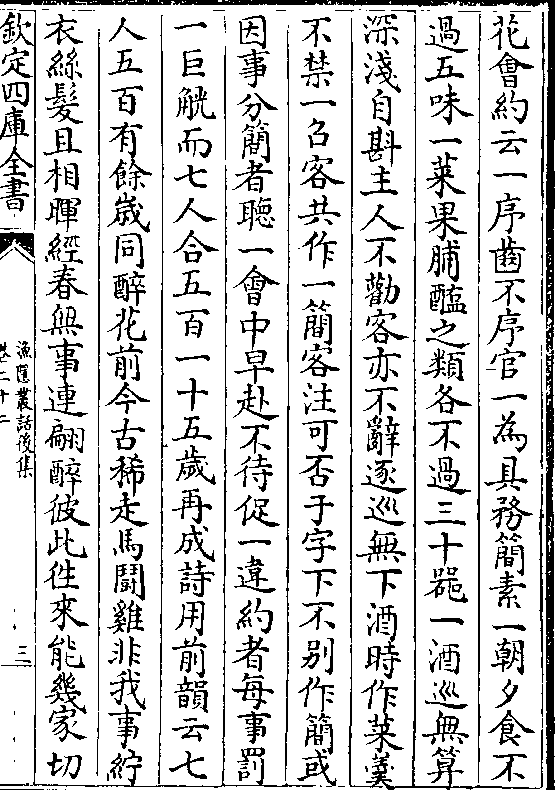 花會約云一序齒不序官一為具務簡素一朝夕食不
過五味一菜果脯醢之類各不過三十器一酒巡無算
深淺自斟主人不勸客亦不辭逐巡無下酒時作菜羹
不禁一召客共作一簡客注可否于字下不别作簡或
因事分簡者聽一會中早赴不待促一違約者每事罰
一巨觥而七人合五百一十五歳再成詩用前韻云七
人五百有餘歳同醉花前今古稀走馬鬭雞非我事紵
衣絲髮且相暉經春無事連翩醉彼此徃來能幾家切
欽定四庫全書
漁隱叢話後集
卷二十二
三